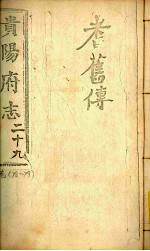 耆舊傳
貴陽府志
二十九